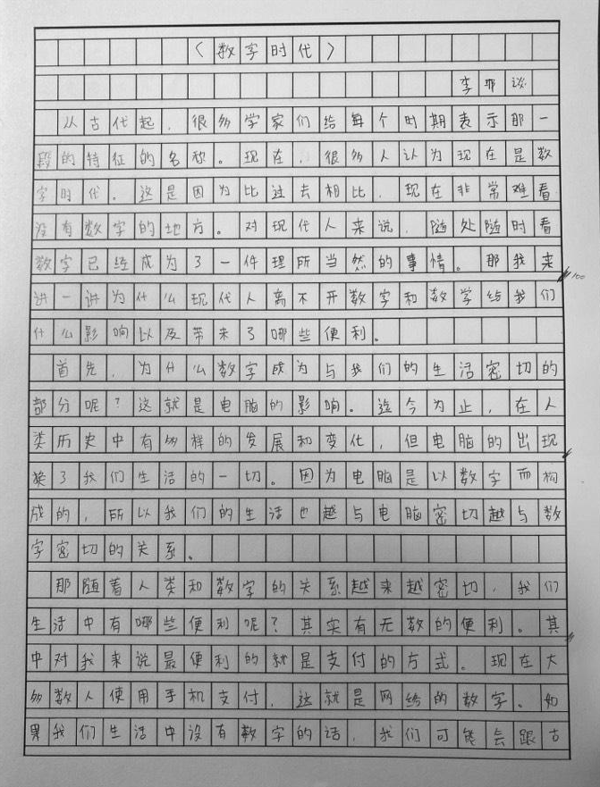 〈数字时代〉
李耶谈
从古代起，很多学家们给每个时期表示那一
段的特征的名称。现在，很多人认为现在是数
字时代。这是因为比过去相比，现在非常难看
没有数字的地方。对现代人来说，随处随时看
数字已经成为了一件理所当然的事情。那我来
讲一讲为什么现代人离不开数字和数学给我们
100
什么影响以及带来了哪些便利。
首先，为什么数字成为与我们的生活密切的
部分呢？这就是电脑的影响。迄今为止，在人
类历史中有多样的发展和变化，但电脑的出现
换了我们生活的一切。因为电脑是以数字而构
成的，所以我们的生活也越与电脑密切越与数
字密切的关系。
那随着人类和数字的关系越来越密切，我们
生活中有哪些便利呢？其实有无数的便利。其
中对我来说最便利的就是支付的方式。现在大
多数人使用手机支付，这就是网络的数字。如
果我们生活中没有数字的话，我们可能会跟古